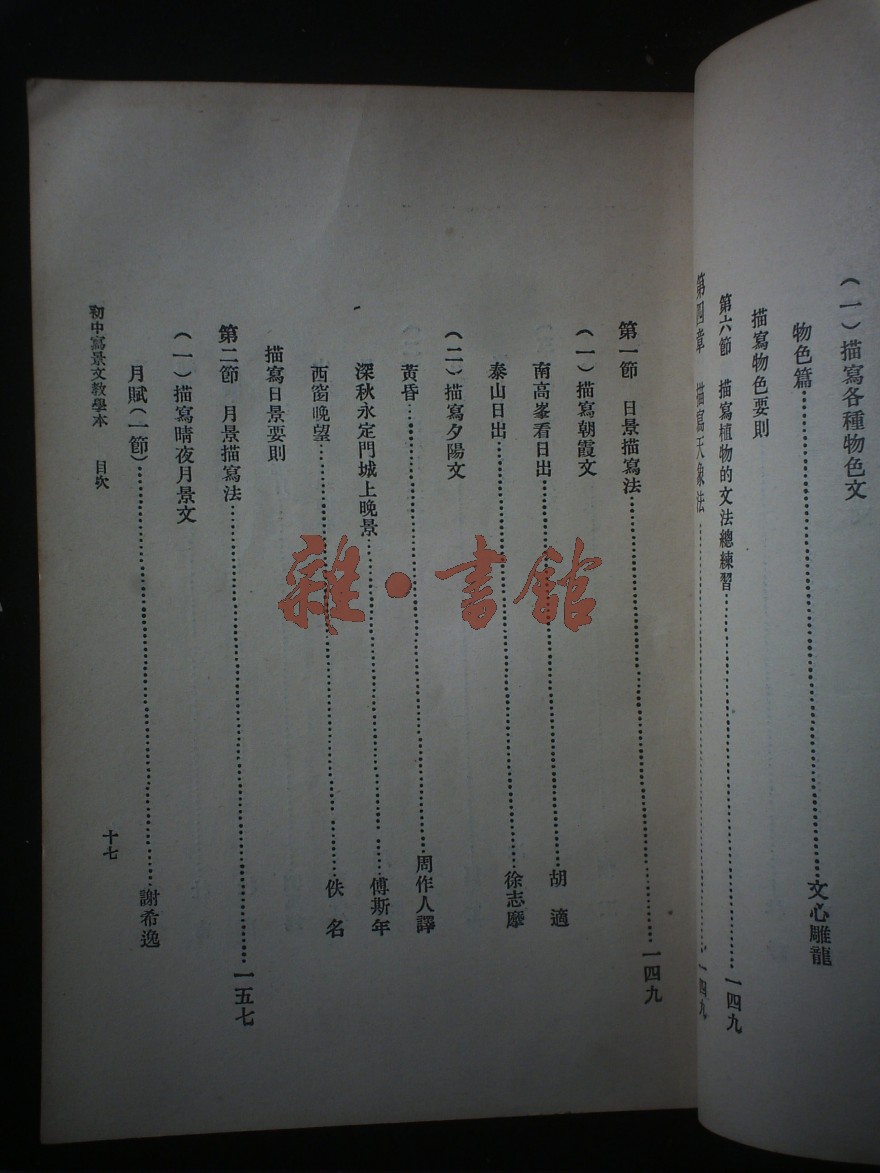 （一）描寫各種物色文
物色篇……文心雕龍
描寫物色要則
第六節 描寫植物的文法總練習……一四九
第四章 描寫天象法……一四九
第一節 日景描寫法……一四九
（一）描寫朝霞文
南高峯看日出……胡適
泰山日出……徐志摩
（二）描寫夕陽文
黃昏……周作人譯
深秋永定門城上晚景……傅斯年
西窗晚望……佚名
描寫日景要則
第二節 月景描寫法……一五七
（一）描寫晴夜月景文
月賦（一節）……謝希逸
初中寫景文教學本 目次
十七
雜·書館